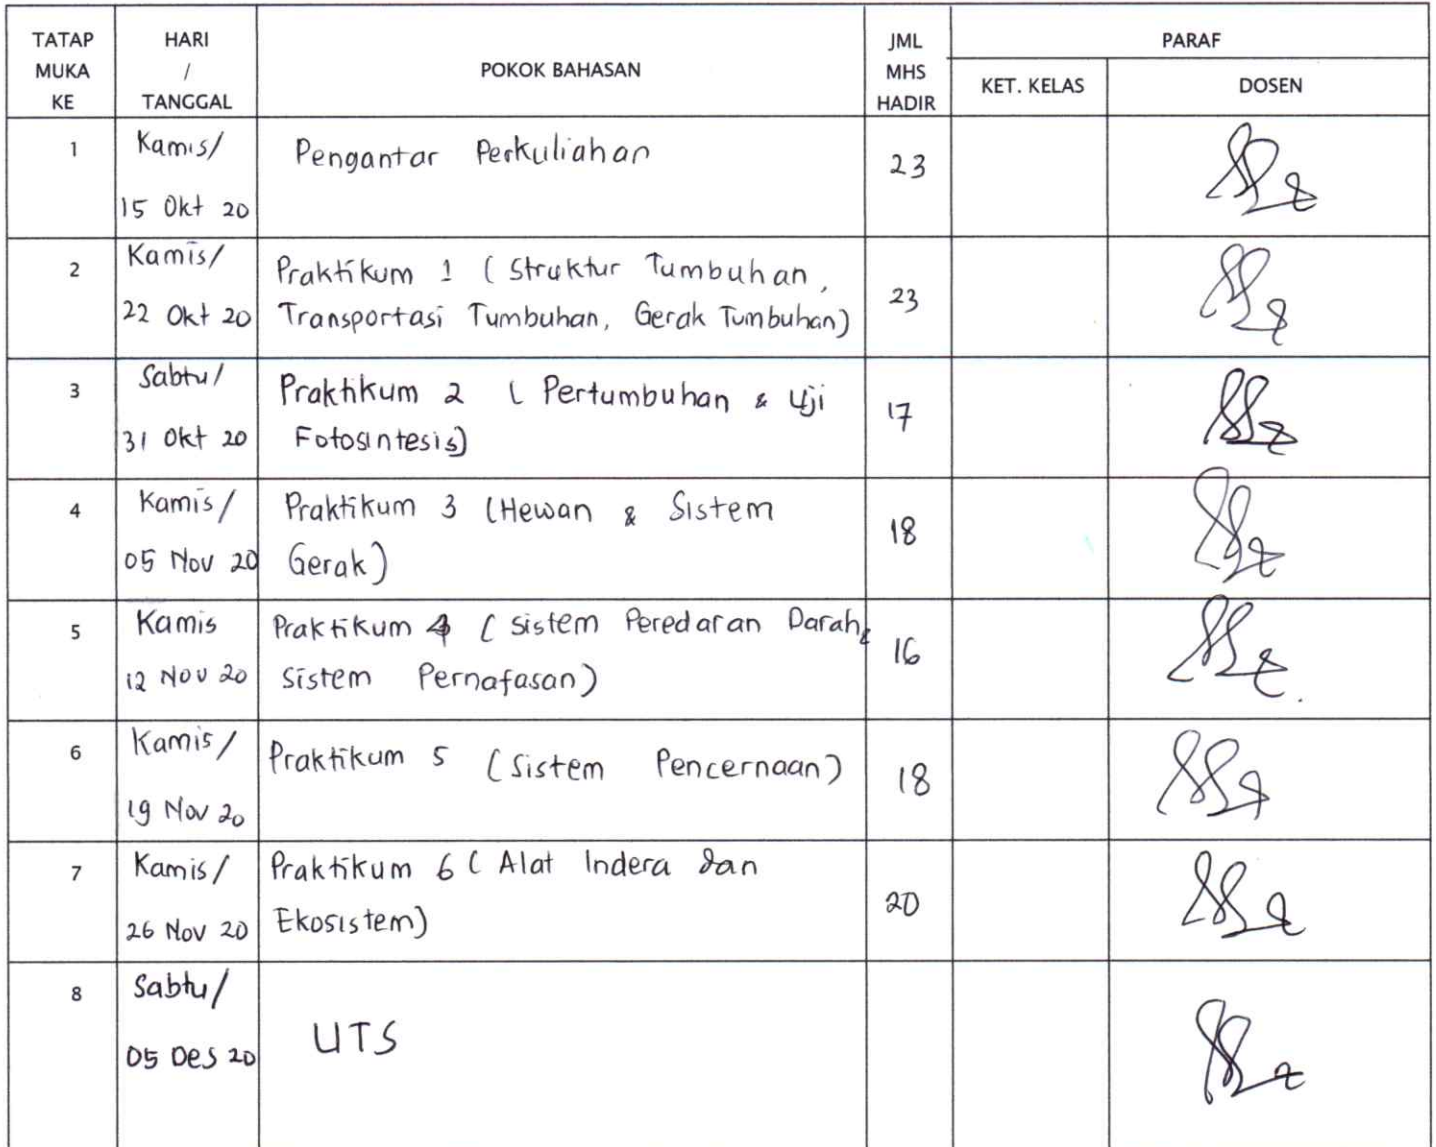 TATAP MUKA KE
HARI / TANGGAL
POKOK BAHASAN
JML MHS HADIR
PARAF
KET. KELAS
DOSEN
1
Kamis/
15 Okt 20
Pengantar Perkuliahan
23
2
Kamis/
22 Okt 20
Praktikum 1 (Struktur Tumbuhan,
Transportasi Tumbuhan, Gerak Tumbuhan)
23
3
Sabtu/
31 Okt 20
Praktikum 2 (Pertumbuhan & Uji
Fotosintesis)
17
4
Kamis/
05 Nov 20
Praktikum 3 (Hewan & Sistem
Gerak)
18
5
Kamis
12 Nov 20
Praktikum 4 (Sistem Peredaran Darah &
Sistem Pernafasan)
16
6
Kamis/
19 Nov 20
Praktikum 5 (Sistem Pencernaan)
18
7
Kamis/
26 Nov 20
Praktikum 6 (Alat Indera dan
Ekosistem)
20
8
Sabtu/
05 Des 20
UTS